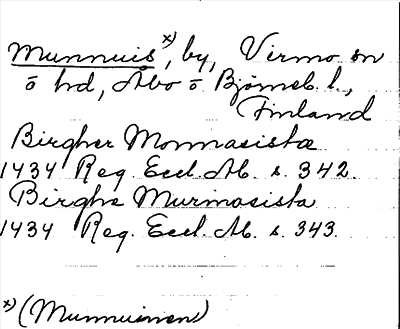 Munnuis x), by, Virmo sn
o hd, Åbo o Björneb. l.,
Finland
Birgher Monnasistæ
1434 Reg. Eccl. Ab. s. 342.
Birghe Murmasista
1434 Reg. Eccl. Ab. s. 343.
x) (Munnuinen)